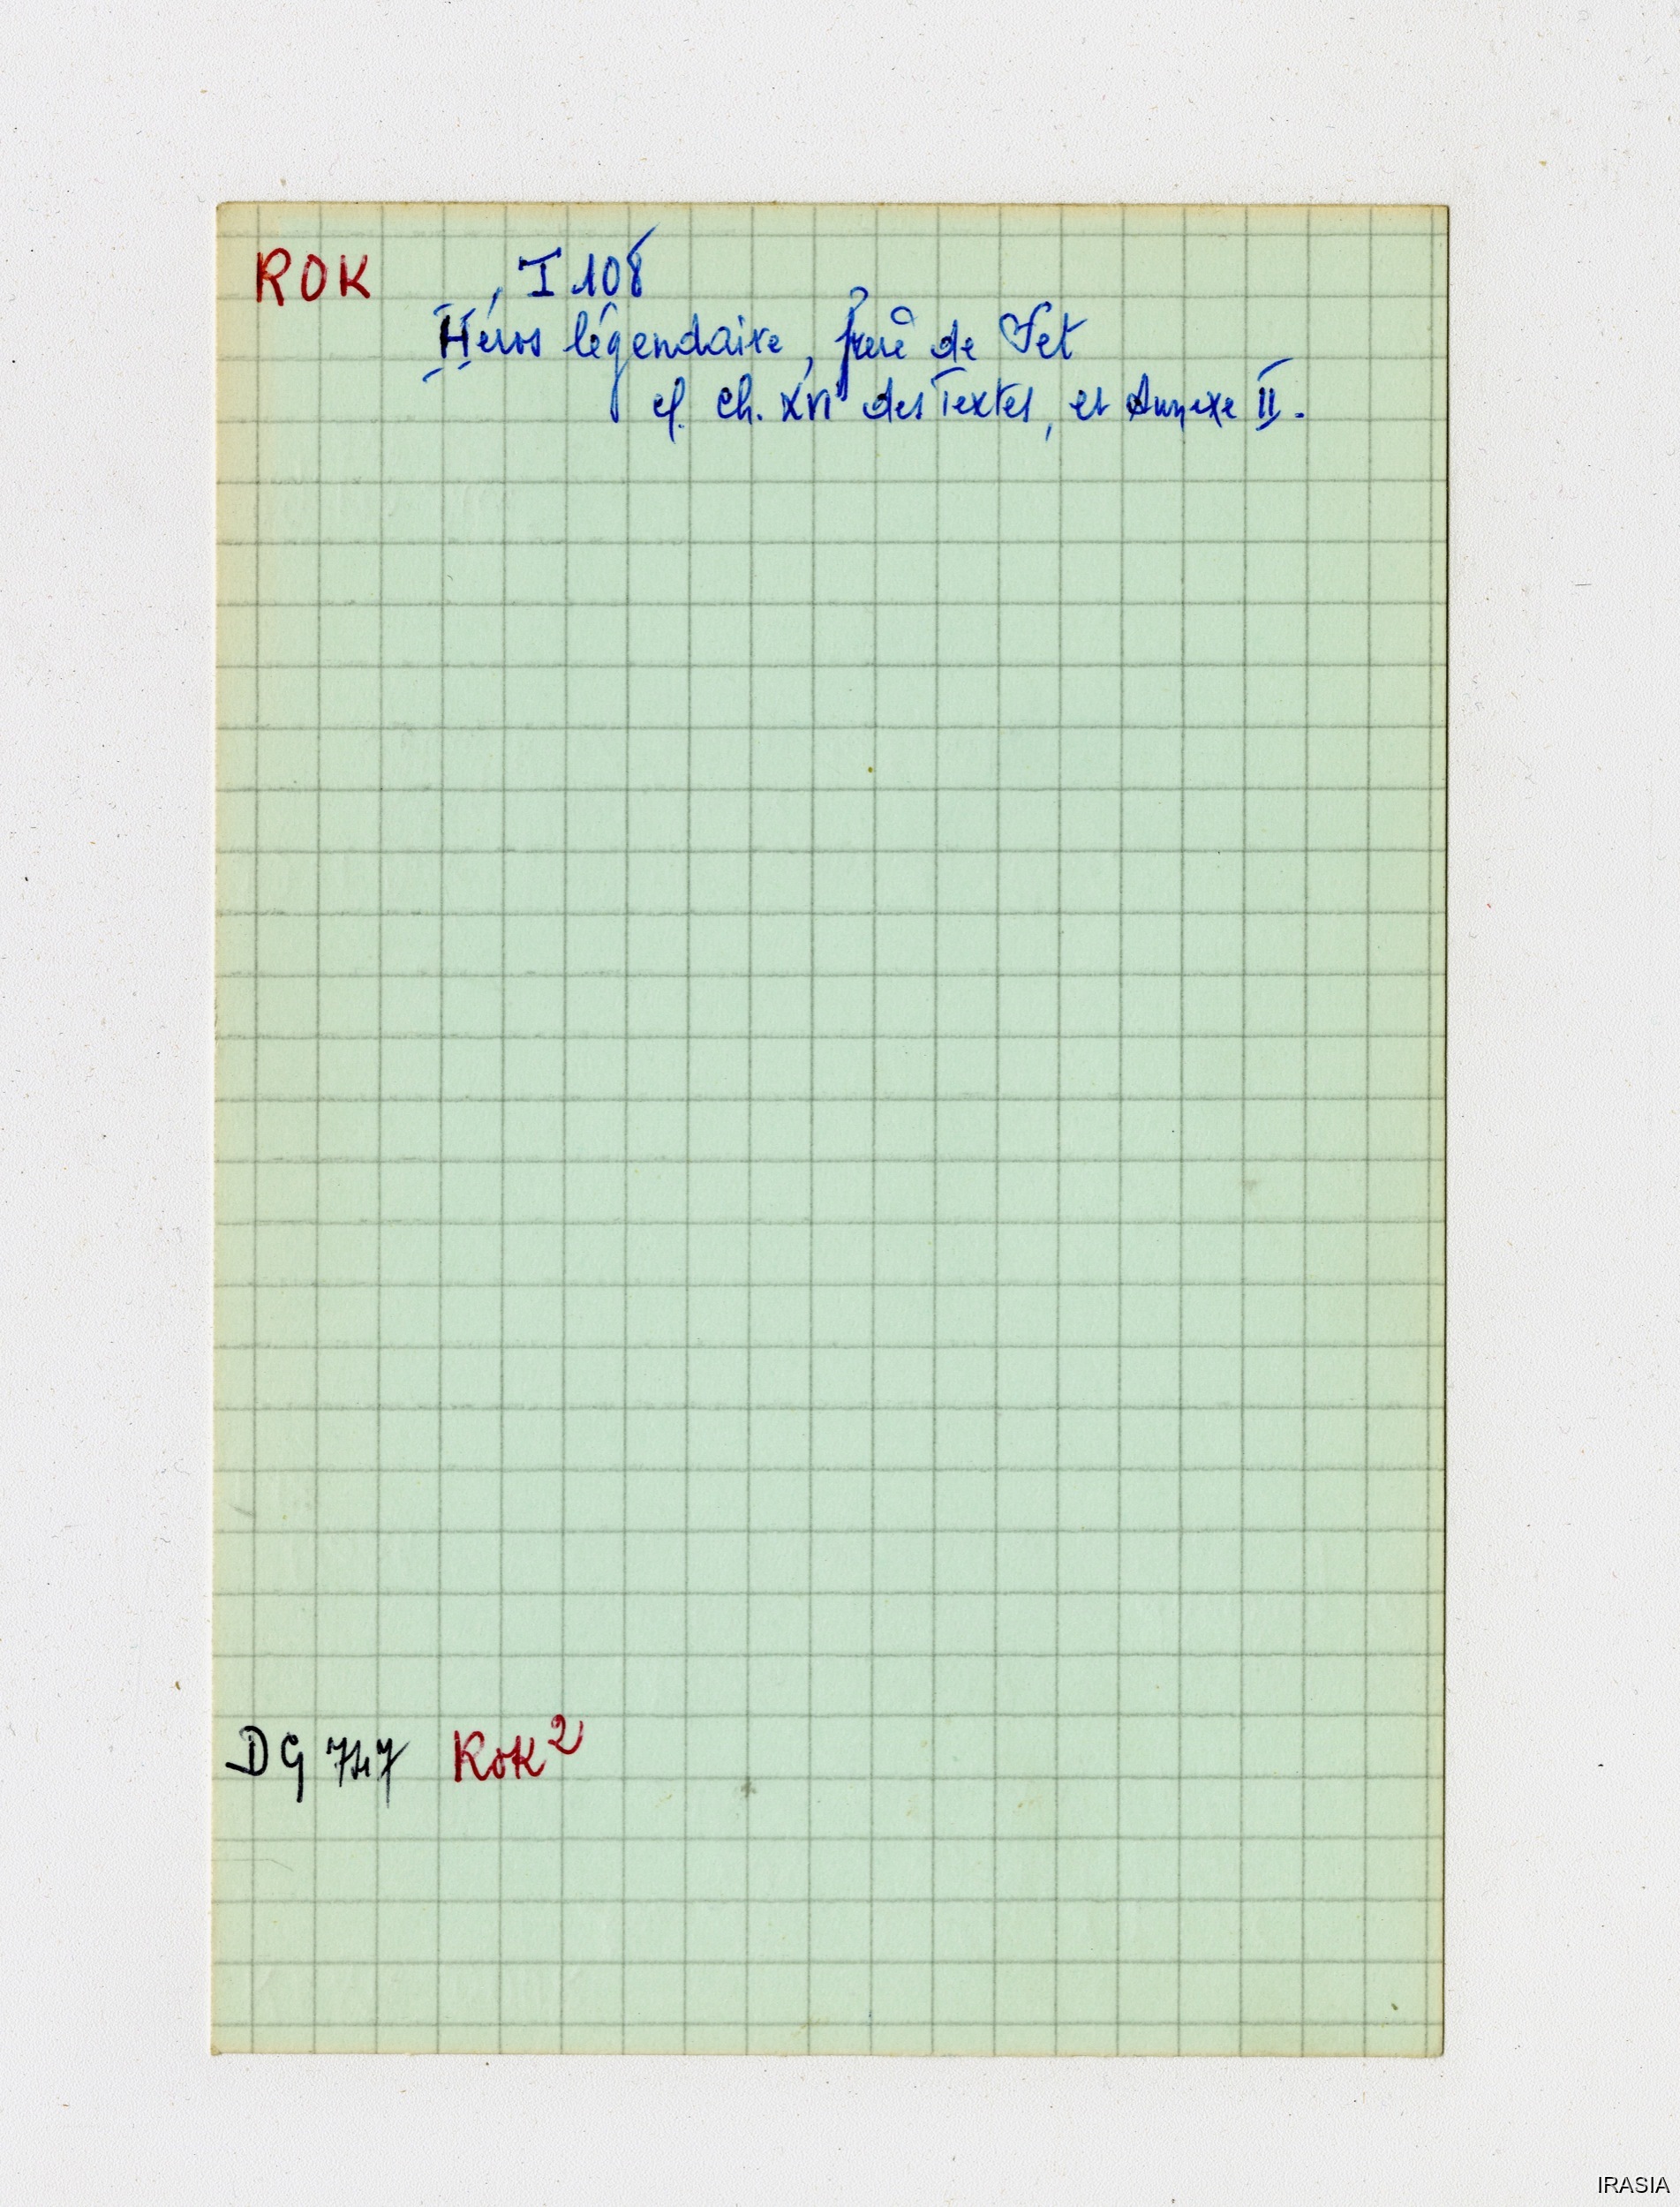 ROK I 108
Héros légendaire, frère de Set
cf. ch. XVI des Textes, et Annexe II.
DG 747 Rok²
IRASIA